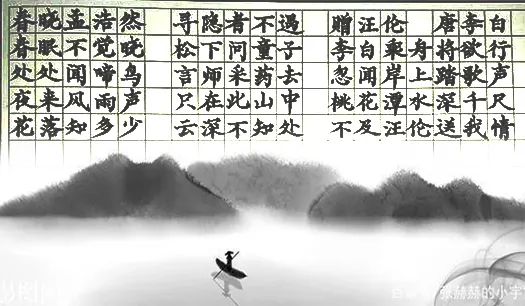 春晓孟浩然
春眠不觉晓
处处闻啼鸟
夜来风雨声
花落知多少
寻隐者不遇
松下问童子
言师采药去
只在此山中
云深不知处
赠汪伦 唐李白
李白乘舟将欲行
忽闻岸上踏歌声
桃花潭水深千尺
不及汪伦送我情
张赫赫的小宇